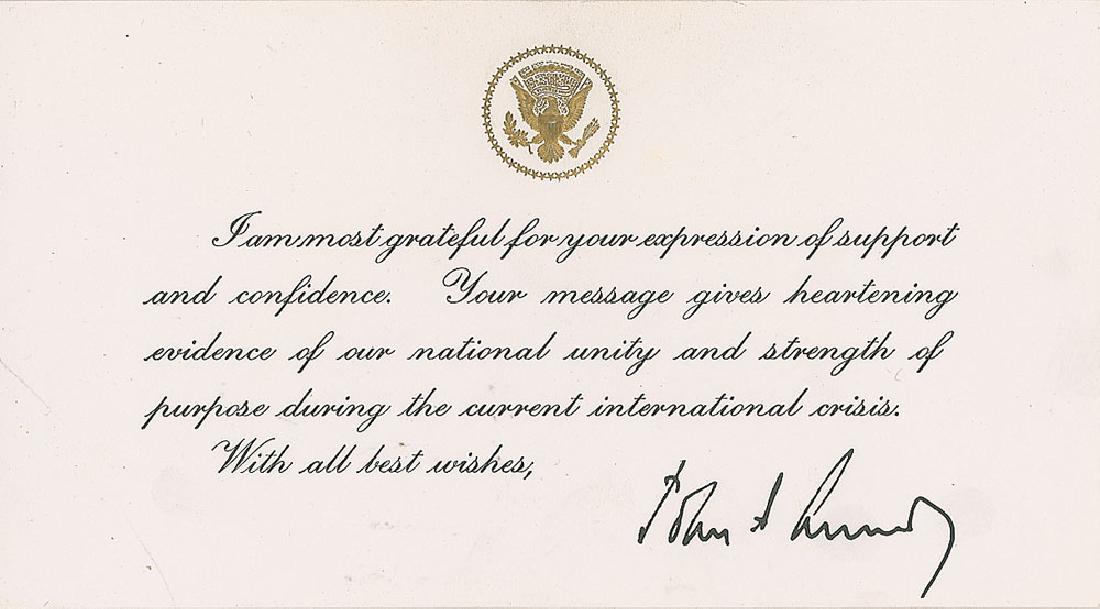 I am most grateful for your expression of support
and confidence. Your message gives heartening
evidence of our national unity and strength of
purpose during the current international crisis.
With all best wishes,
John F Kennedy